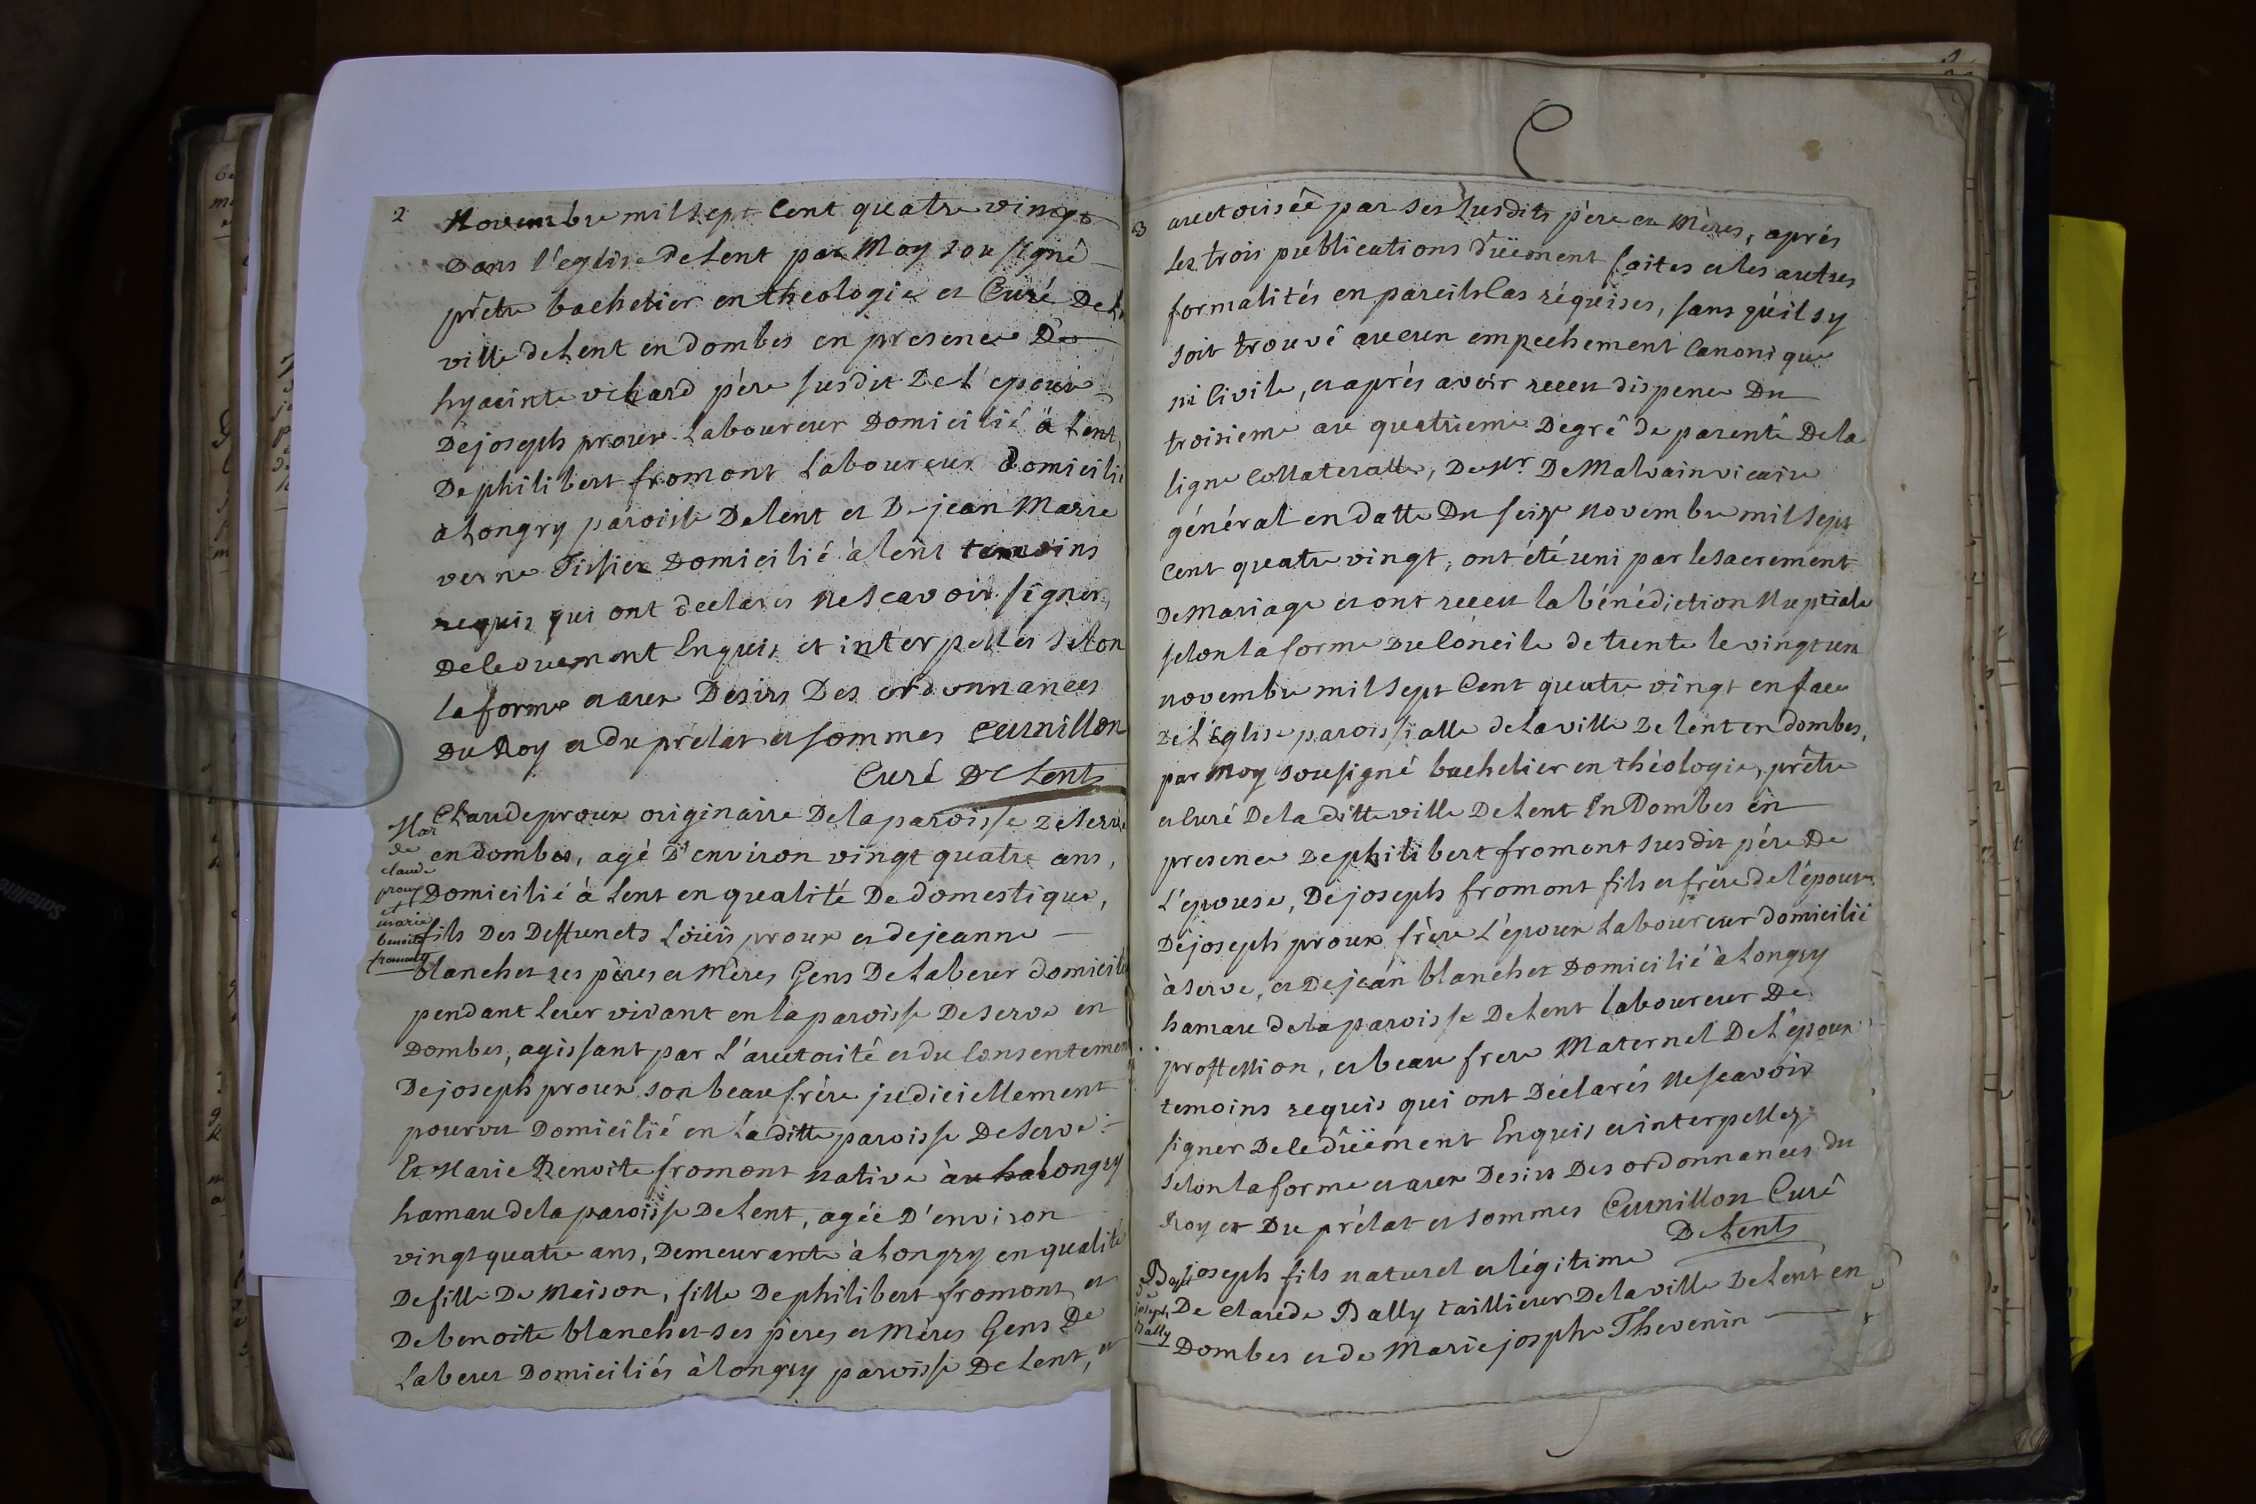 2
Novembre mil sept Cent quatre vingt
Dans l'eglise de Lent par Moy sousigné
prêtre bachelier en theologie et Curé De la
ville de Lent en dombes en presence De
hyacinte vchard père susdit De L'epouse
De joseph proux Laboureur Domicilié à Lent
De philibert fromont Laboureur domicilié
à Longry paroisse De lent et De jean Marie
verne Tissier Domicilié à lent temoins
requis qui ont declarés ne scavoir signer,
De le duement Enquis et interpellés selon
la forme et aux Desirs Des ordonnances
Du Roy et du prélat et sommes Curnillon
Curé De Lent
Mar
de
claude
proux
et
marie
benoite
fromont
Claude proux originaire De la paroisse De serve
en dombes, agé D'environ vingt quatre ans,
Domicilié à Lent en qualité De domestique,
fils Des Deffunets Loüis proux et de jeanne
blanchet ses pères et Mères Gens De Labeur domicilié
pendant leur vivant en la paroisse De serve en
Dombes, agissant par L'auctorité et du Consentement
De joseph proux son beau frère judiciellement
pourvu Domicilié en La ditte paroisse De serve
Et Marie Benoite fromont native à Longry
hamau de la paroisse De Lent, agée D'environ
vingt quatre ans, Demeurante à Longry en qualité
De fille De Maison, fille De philibert fromont et
De benoite blanchet ses pères et Mères Gens De
Labeur Domiciliés à longry paroisse De Lent, et
3
auctorisée par ses susdits père et Mères, aprés
les trois publications düement faites et les autres
formalités en pareils Cas réquises, sans qu'il sy
soit trouvé aucun empechement Canonique
ni Civile, et aprés avoir receu dispence Du
troisieme au quatrieme Degré de parenté De la
ligne Collateralle, De Mr De Malvain vicaire
général en datte Du seize Novembre mil sept
Cent quatre vingt, ont été uni par le sacrement
De Mariage et ont receu la bénédiction Nuptiale
selon la forme Du Concile de trente le vingt un
novembre mil sept Cent quatre vingt en face
De L'église paroissialle de La ville De lent en dombes,
par Moy sousigné bachelier en théologie, prêtre
et Curé De la ditte ville De Lent En Dombes en
presence De philibert fromont susdit père De
L'épouse, De joseph fromont fils et frère de l'épouse
De joseph proux frère L'époux Laboureur domicilié
à serve, et De jean blanchet Domicilié à Longry
hamau de la paroisse De Lent laboureur De
proffession, et beau frere Maternel De L'époux
temoins requis qui ont Déclarés Ne scavoir
signer De le düëment Enquis et interpellez
selon la forme et aux Desirs Des ordonnances du
Roy et Du prélat et sommes Curnillon Curé
De Lent
Bap
de
joseph
Bally
joseph fils naturel et légitime
De claude Bally taillieur De la ville De Lent en
Dombes et de Marie josphe Thevenin